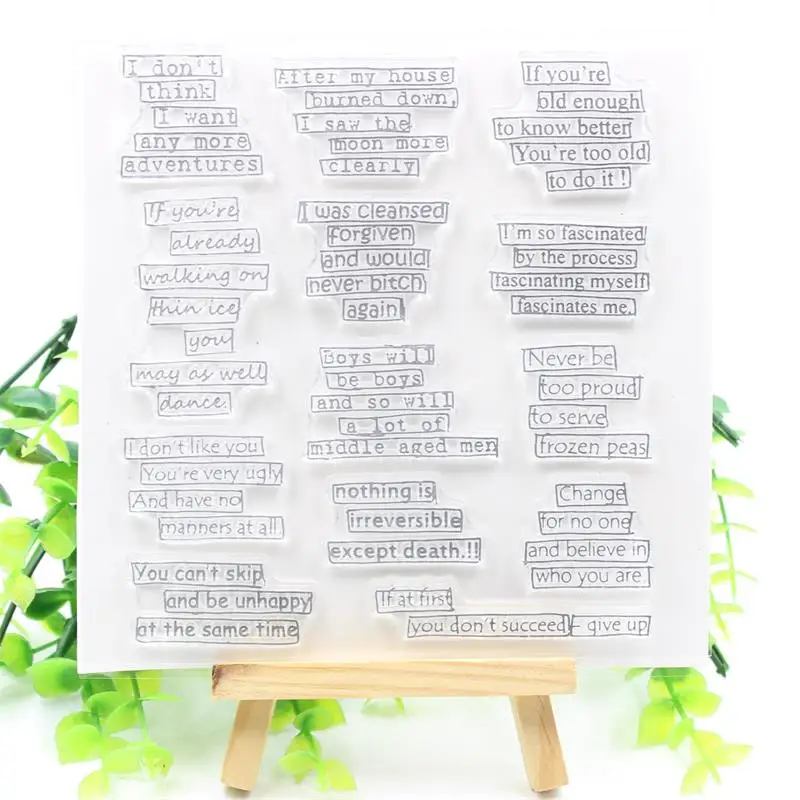 I don't
think
I want
any more
adventures
After my house
burned down,
I saw the
moon more
clearly
If you're
old enough
to know better
You're too old
to do it !
If you're
already
walking on
thin ice
you
may as well
dance.
I was cleansed
forgiven
and would
never bitch
again
I'm so fascinated
by the process
fascinating myself
fascinates me.
Boys will
be boys
and so will
a lot of
middle aged men
Never be
too proud
to serve
frozen peas
I don't like you
You're very ugly
And have no
manners at all.
nothing is
irreversible
except death.!!
Change
for no one
and believe in
who you are.
You can't skip
and be unhappy
at the same time
If at first
you don't succeed - give up